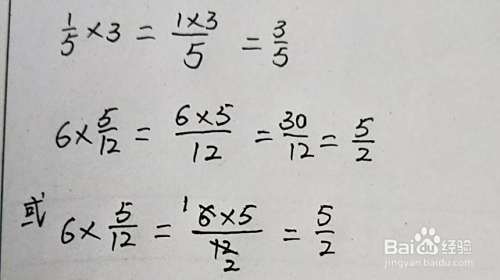 1/5 × 3 = 1×3/5 = 3/5
6 × 5/12 = 6×5/12 = 30/12 = 5/2
或 6 × 5/12 = 1 6×5/12 2 = 5/2
Bai du 经验
jingyan.baidu.com